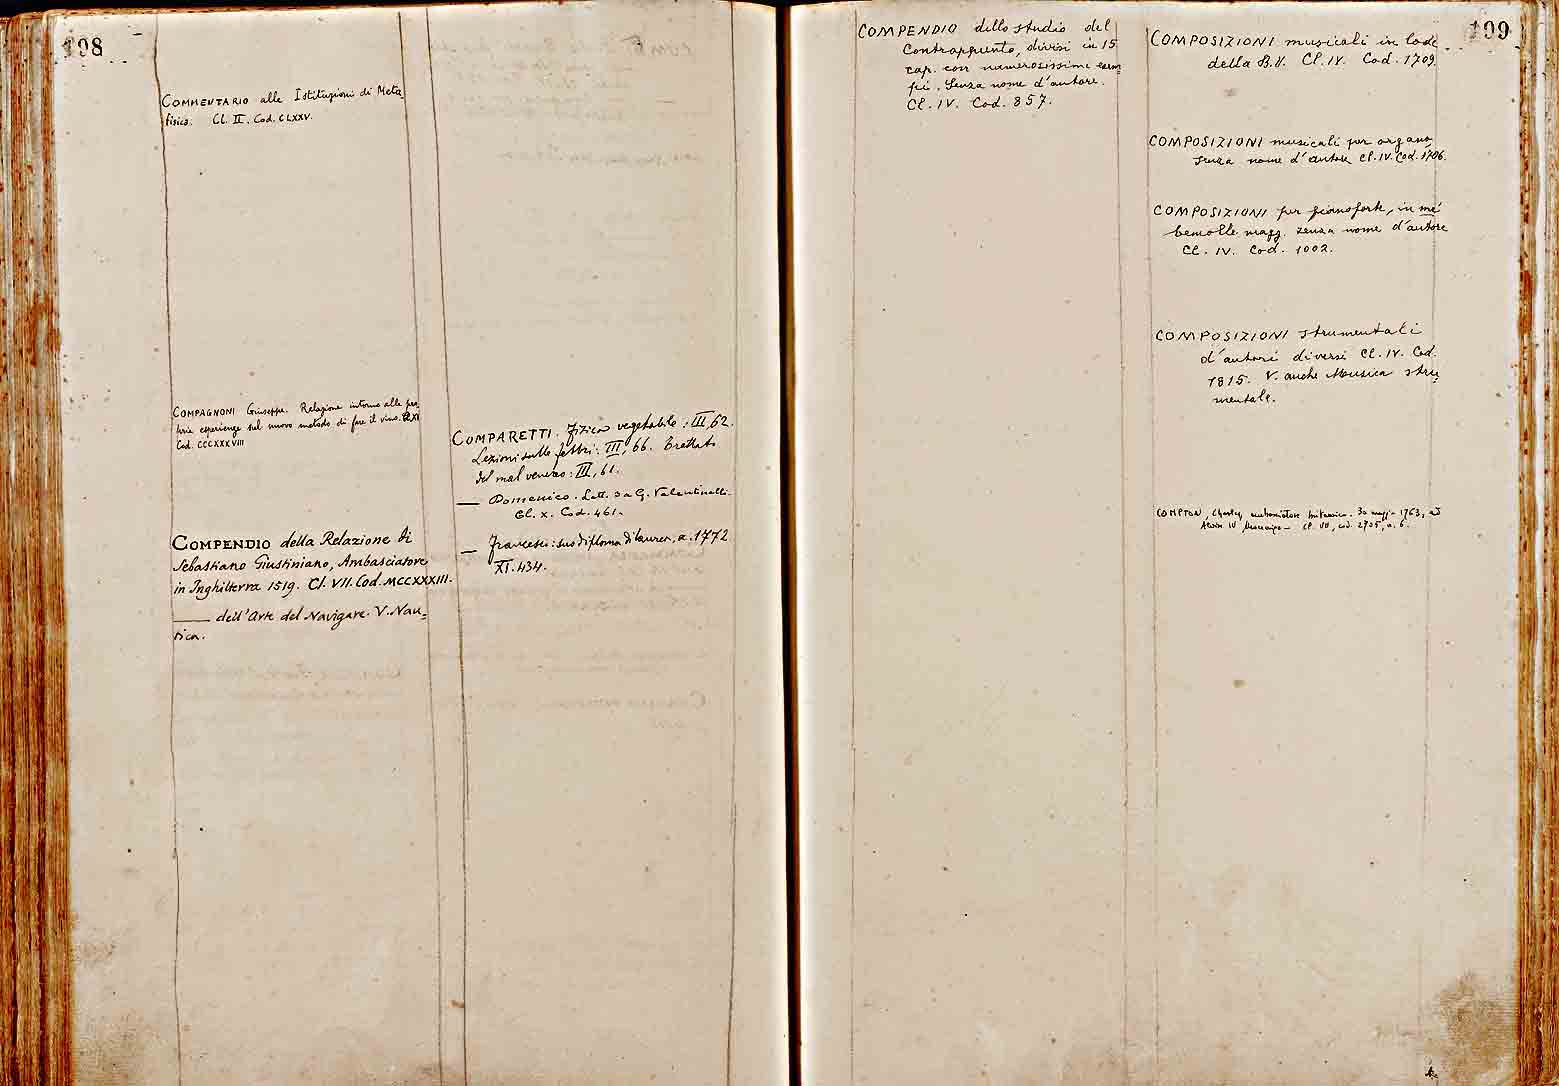 198
COMMENTARIO alle Istituzioni di Meta-
fisica. Cl. II. Cod. CLXXV.
COMPAGNONI Giuseppe. Relazione intorno alle pro-
prie esperienze sul nuovo metodo di fare il vino. Cl. XI
Cod. CCCXXXVIII
COMPENDIO della Relazione di
Sebastiano Giustiniano, Ambasciatore
in Inghilterra 1519. Cl. VII. Cod. MCCXXXIII.
—— dell'Arte del Navigare. V. Nau=
tica.
COMPARETTI. Fisica vegetabile: III, 62.
Lezioni sulle febbri: III, 66. Trattato
del mal venereo: III, 61.
— Domenico. Lett. 3 a G. Valentinelli.
Cl. X. Cod. 461.
— Francesco: suo diploma di laurea, a. 1772
XI. 434.
COMPENDIO dello studio del
Contrappunto, divisi in 15
cap. con numerosissimi esem=
pi. Senza nome d'autore.
Cl. IV. Cod. 857.
199
COMPOSIZIONI musicali in lode
della B. V. Cl. IV. Cod. 1709.
COMPOSIZIONI musicali per organo,
senza nome d'autore Cl. IV. Cod. 1706.
COMPOSIZIONI per pianoforte, in mi
bemolle magg. senza nome d'autore
Cl. IV. Cod. 1002.
COMPOSIZIONI strumentali
d'autori diversi Cl. IV. Cod.
1815. V. anche Musica stru=
mentale.
COMPTON, Charles, ambasciatore britannico. 30 maggio 1763, ad
Alvise IV Mocenigo — Cl. VII, cod. 2705, n. 6.